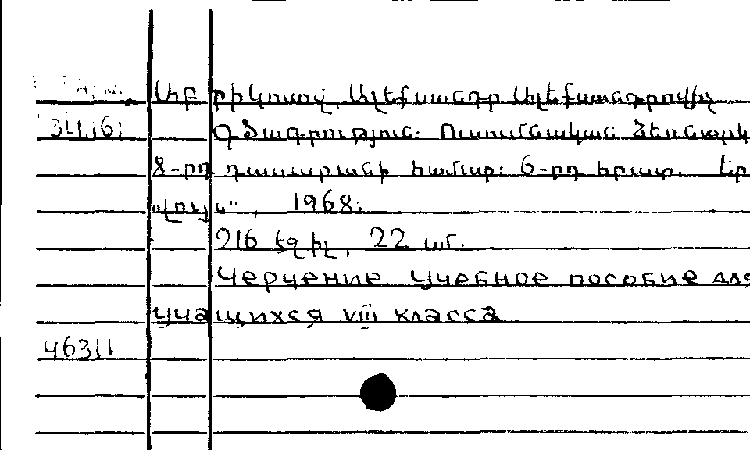 Ալեքսանդր Ալեքսանդրովիչ
Գծագրություն. Ուսումնական ձեռնարկ
8-րդ դասարանի համար: 6-րդ հրատ. Եր
„Լույս", 1968.
216 էջ իլ, 22 սմ.
Черчение Учебное пособие для
учащихся VIII класса
46311